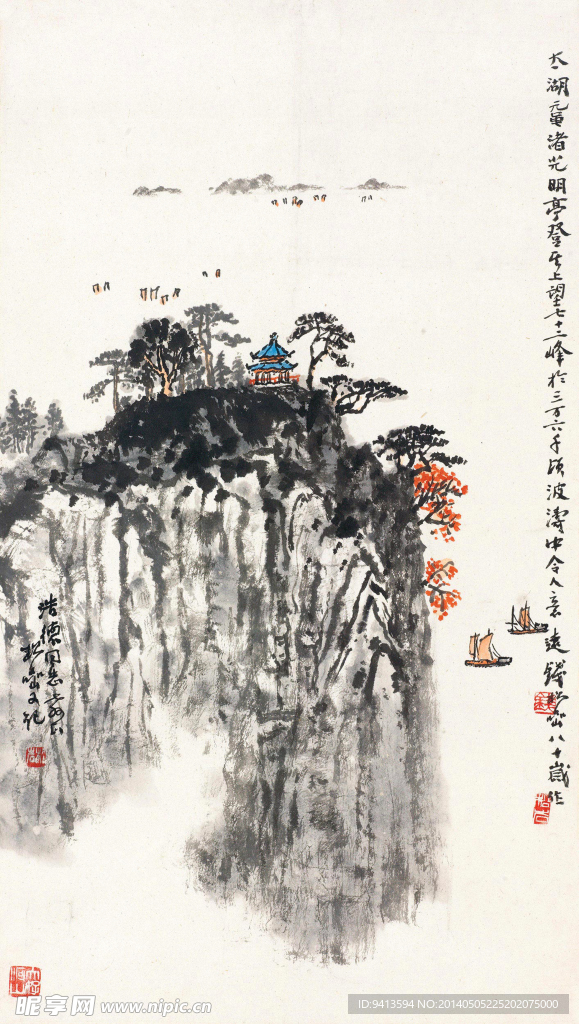 太湖黿渚光明亭登其上望七十二峰於三万六千顷波濤中令人意遠錢松嵒八十歲作
浩德同志正之
松嵒又記
昵享网 www.nipic.cn
ID:9413594 NO:20140505225202075000